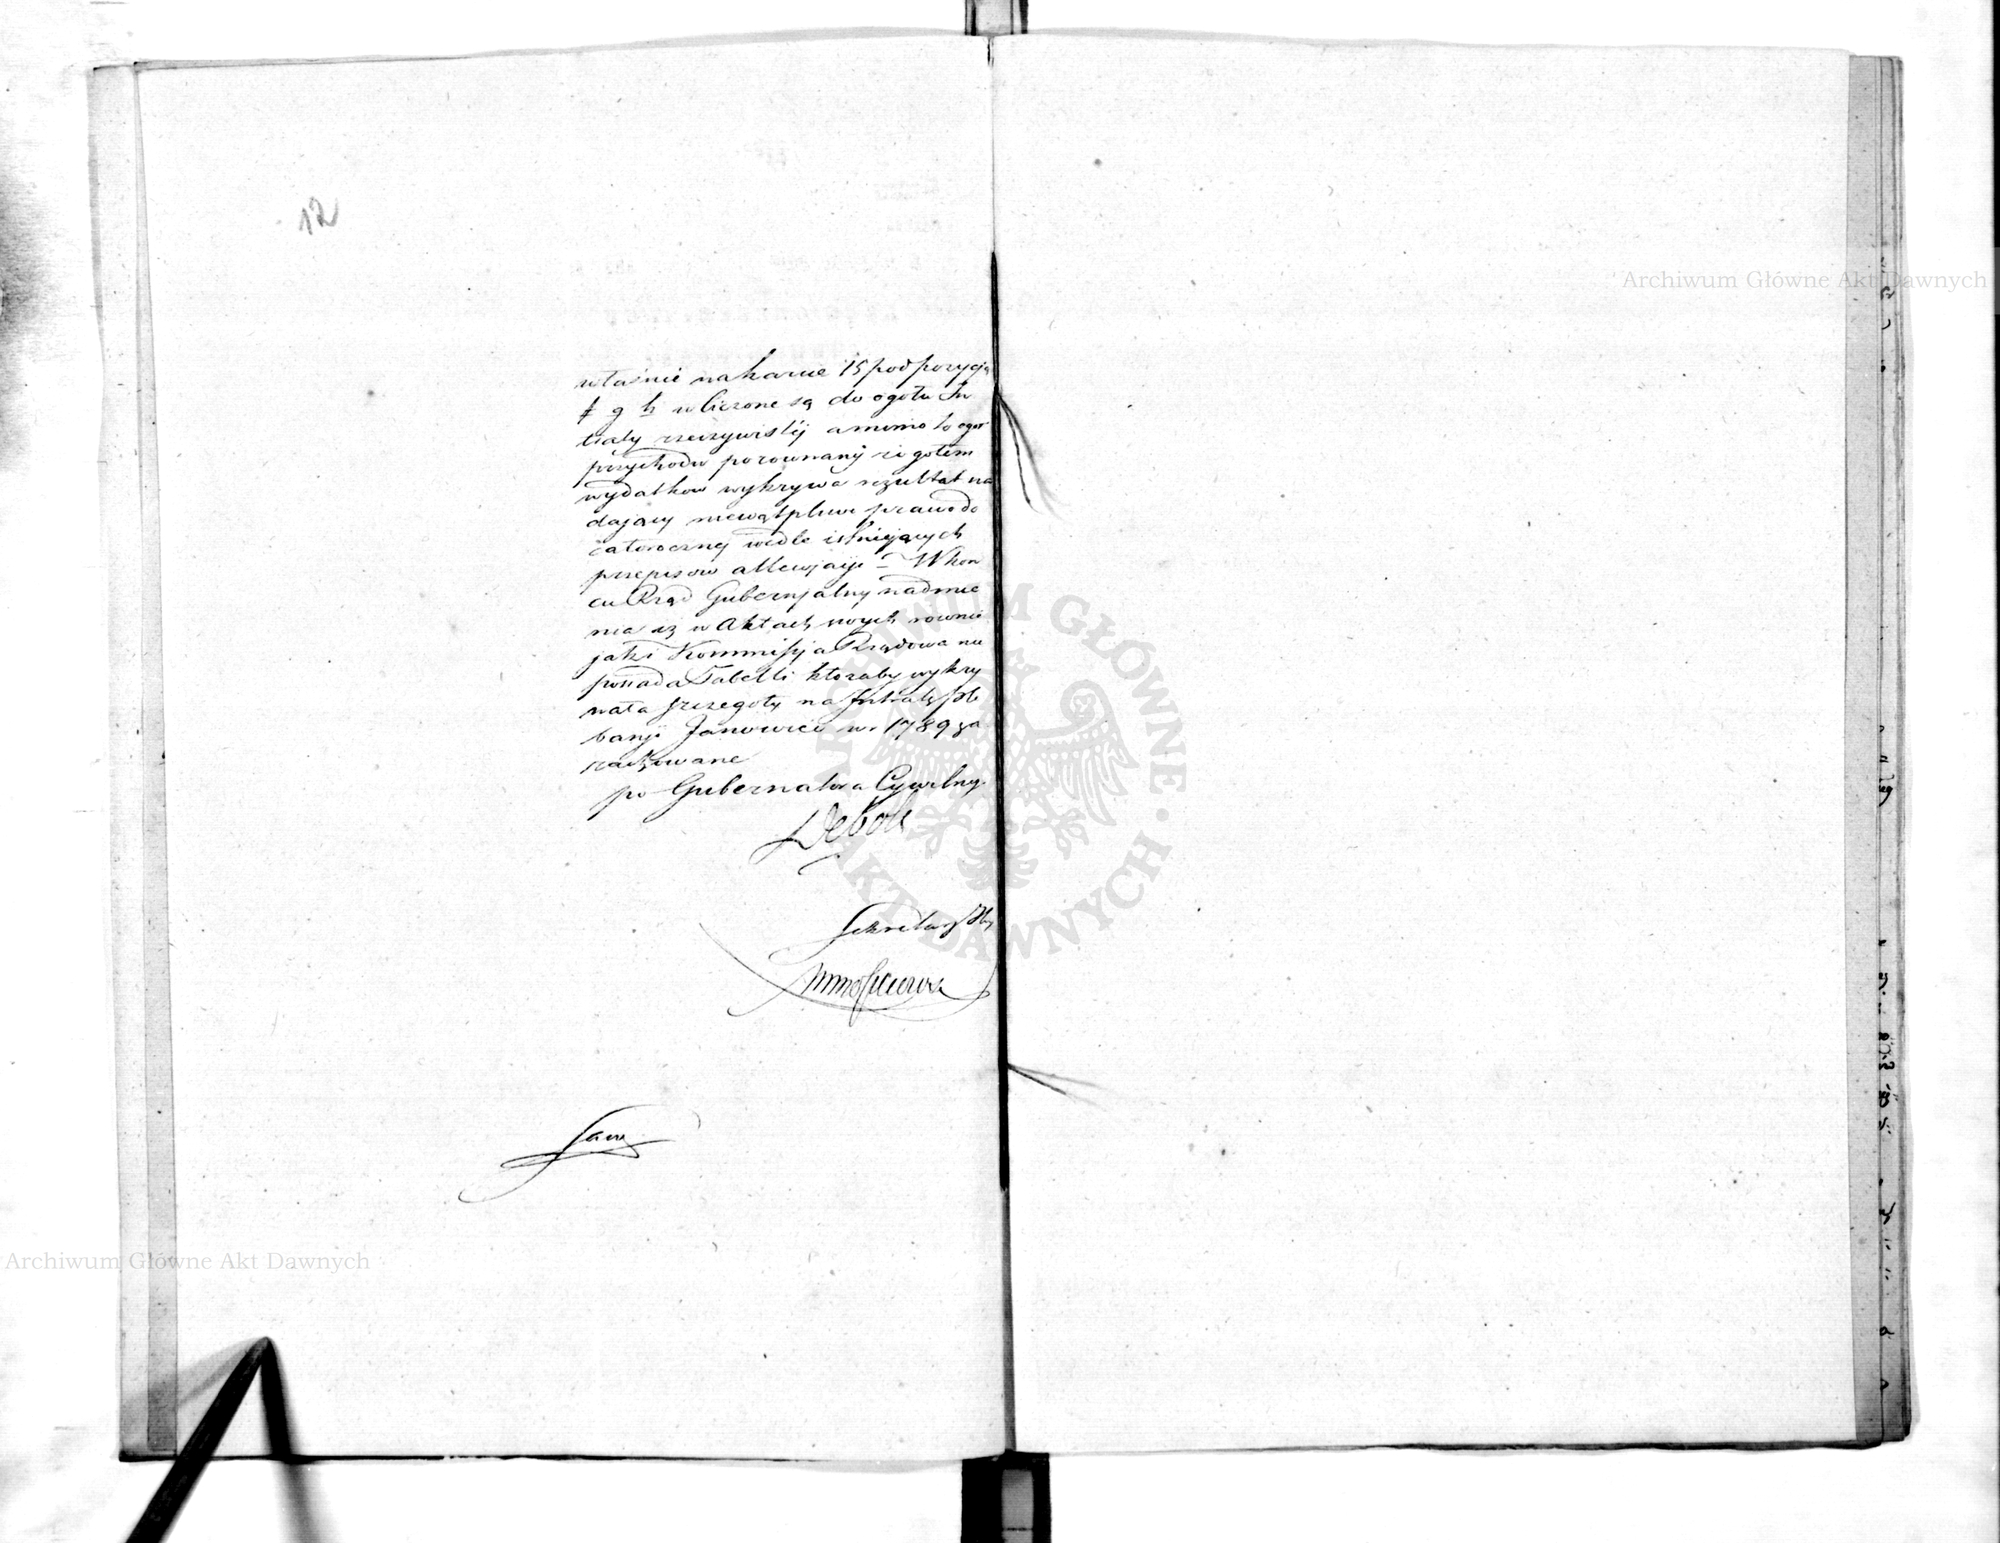 12
właśnie na karcie 15 pod pozycją
f g h wliczone są do ogółu In
traty rzeczywistéj a mimo to ogół
przychodu porownany z ogółem
wydatkow wykrywa rezultat na
dający niewątpliwe prawo do
całorocznej wedle istniejących
przepisow allewjacyi = W koń
cu Rząd Gubernjalny nadmie
nia iż w Aktach swych rownie
jak i Kommissyja Rządowa nie
posiada Tabelli ktoraby wykry
wała szczegoły na Intratę Ple
banji Janowiec w r 1789 za
rachowane
po Gubernatora Cywilneg
Deboli
Sekretarz
Archiwum Główne Akt Dawnych
Archiwum Główne Akt Dawnych
ARCHIWUM GŁÓWNE AKT DAWNYCH